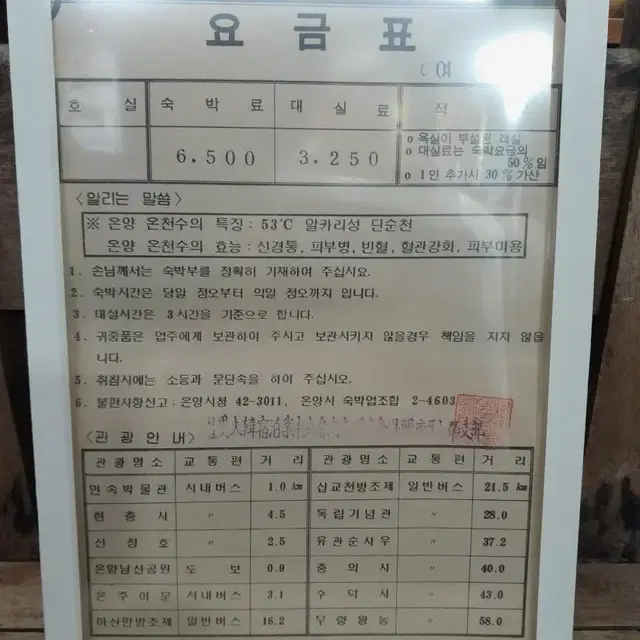 요 금 표
여
호 실 숙 박 료 대 실 료 적
6.500 3.250
o 욕실이 부설된 객실
o 대실료는 숙박요금의
50%임
o 1인 추가시 30% 가산
〈알리는 말씀〉
※ 온양 온천수의 특징 : 53℃ 알카리성 단순천
온양 온천수의 효능 : 신경통, 피부병, 빈혈, 혈관강화, 피부미용
1. 손님께서는 숙박부를 정확히 기재하여 주십시요.
2. 숙박시간은 당일 정오부터 익일 정오까지 입니다.
3. 대실시간은 3시간을 기준으로 합니다.
4. 귀중품은 업주에게 보관하여 주시고 보관시키지 않을경우 책임을 지지 않습
니다.
5. 취침시에는 소등과 문단속을 하여 주십시오.
6. 불편사항신고 : 온양시청 42-3011, 온양시 숙박업조합 2-4603
大韓宿泊業
〈관 광 안 내〉
관광명소 교통편 거 리 관광명소 교통편 거 리
민속박물관 시내버스 1.0㎞ 삽교천방조제 일반버스 21.5㎞
현 충 사 〃 4.5 독립기념관 〃 28.0
신 정 호 〃 2.5 유관순사우 〃 37.2
온양남산공원 도 보 0.9 충 의 사 〃 40.0
온 주 아 문 시내버스 3.1 수 덕 사 〃 43.0
아산만방조제 일반버스 16.2 무 령 왕 능 〃 58.0